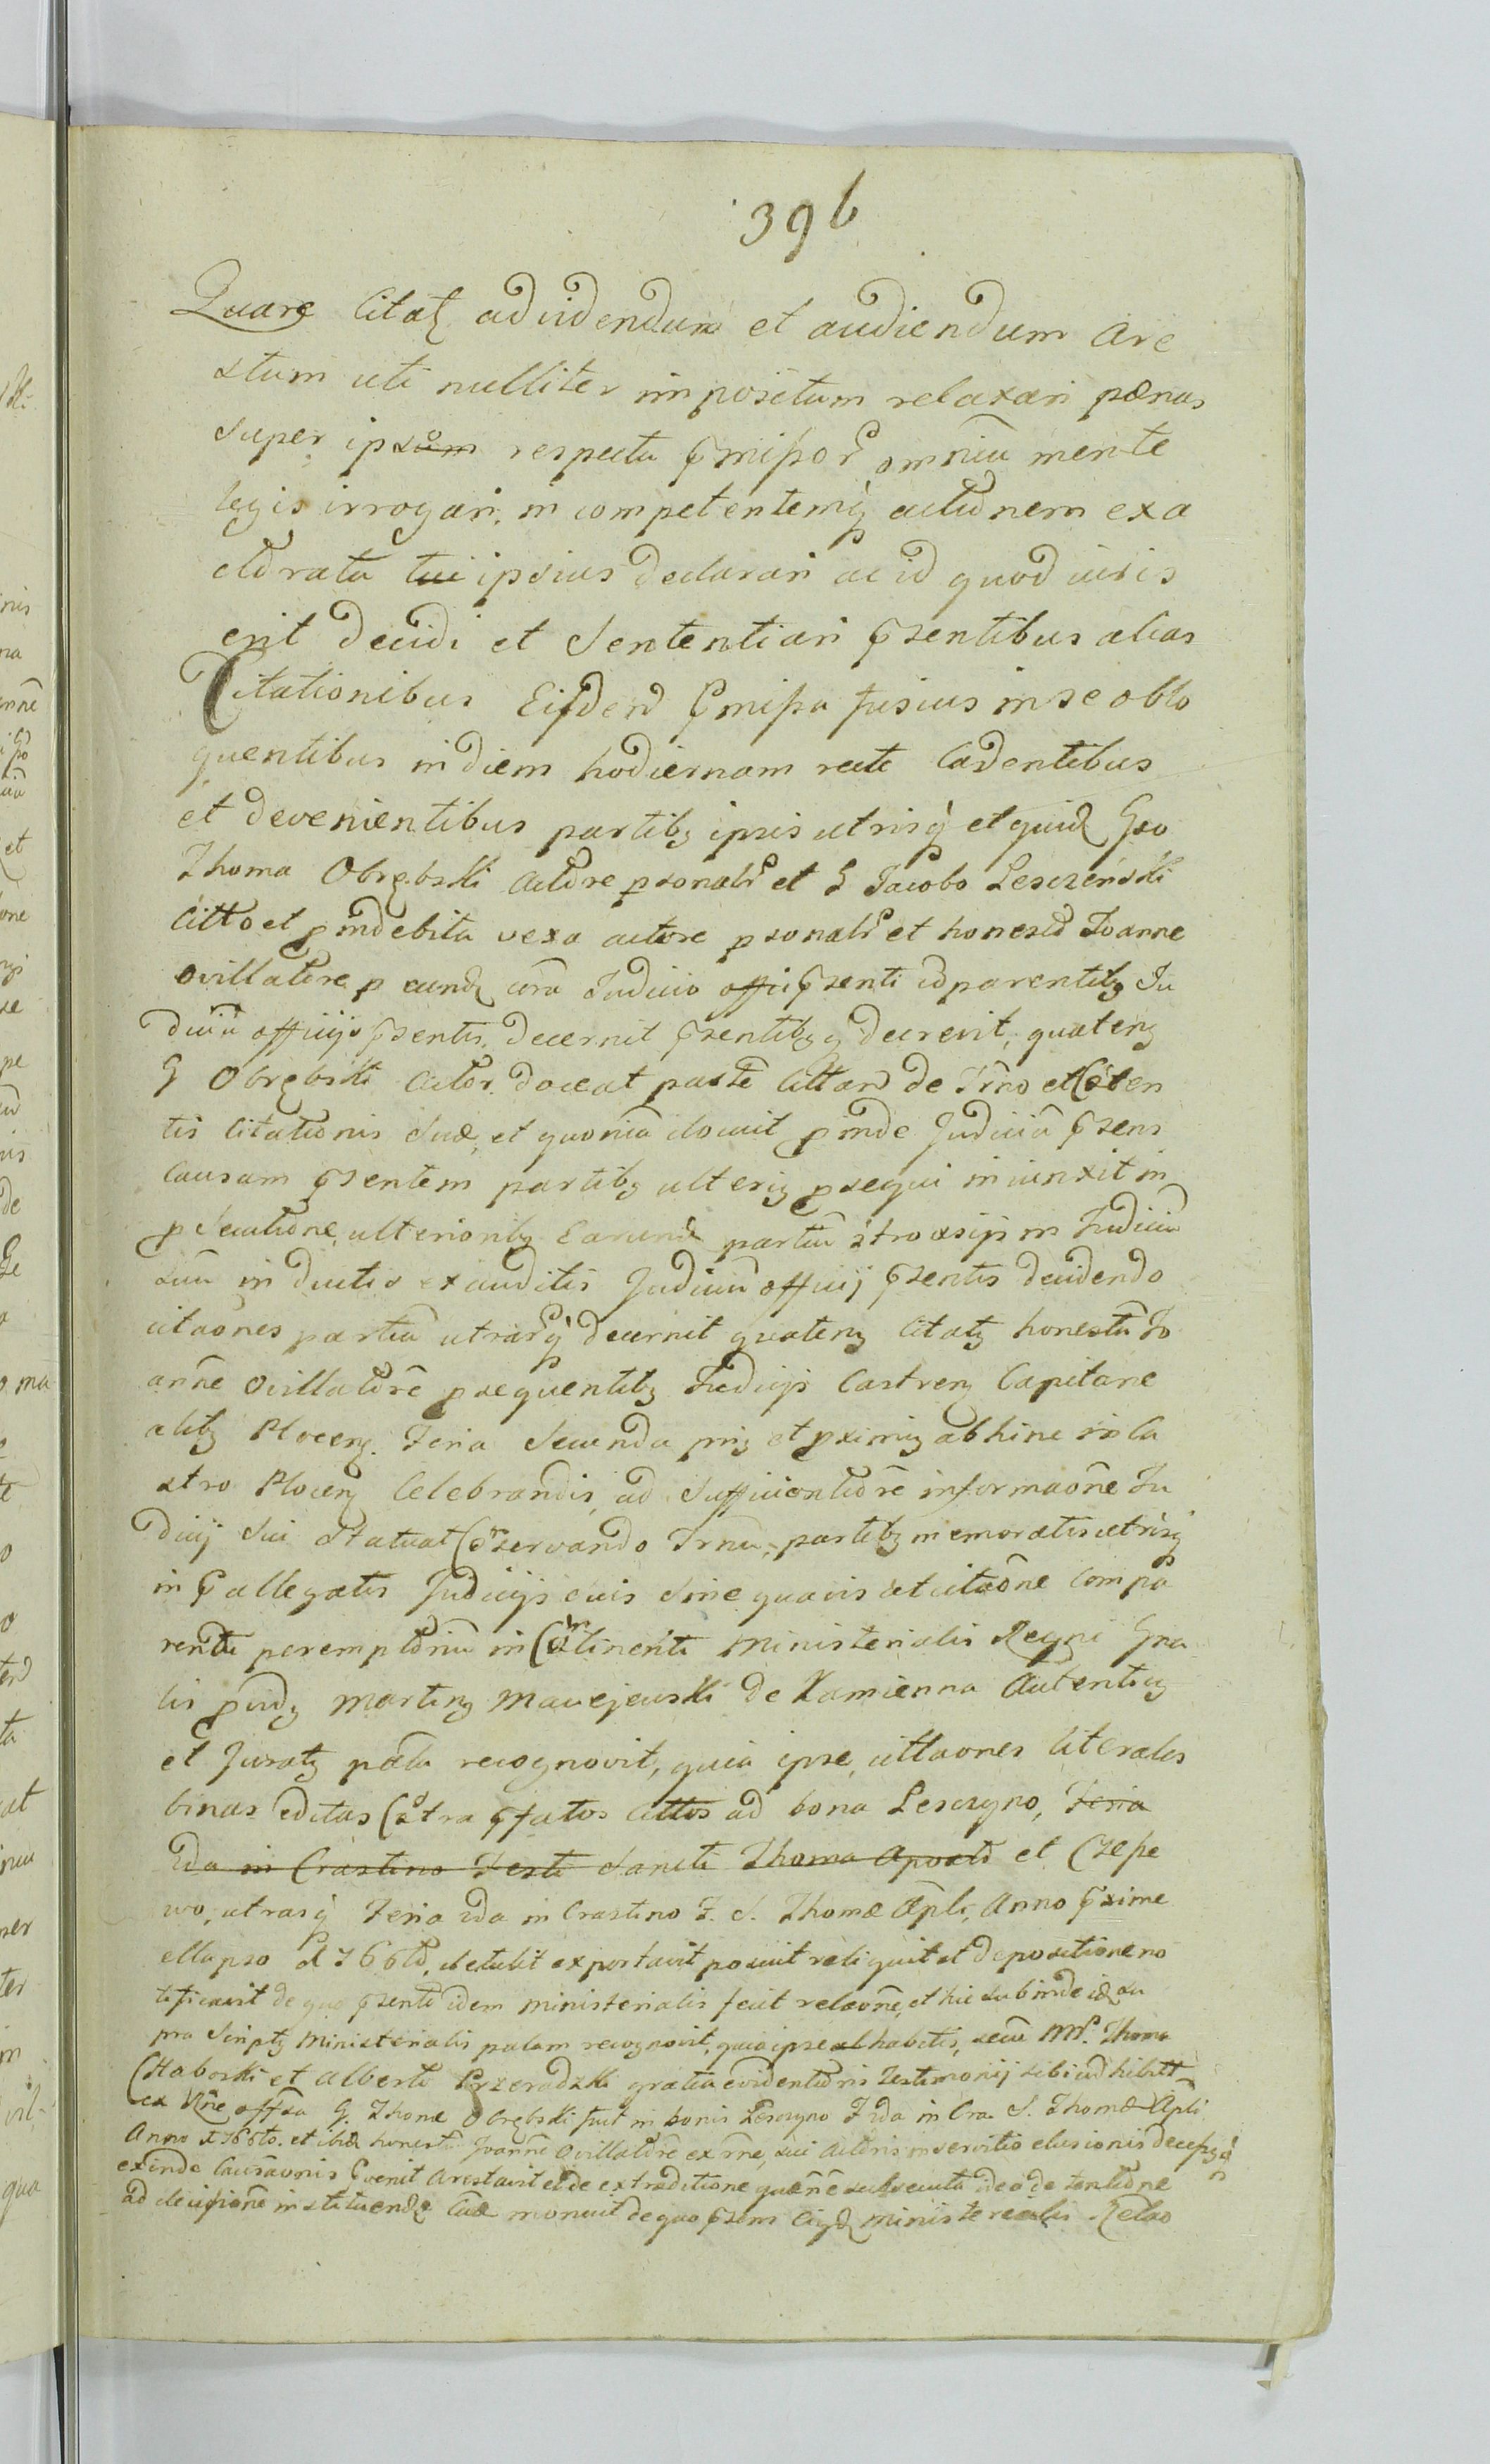 396
Quare Citatg ad videndum et audiendum are
stum uti nulliter impositum relaxari pœnas
super ipsum respectu pmissor omniu mente
legis irrogari, in competentemq actionem exa
ctoratu tui ipsius declarari ac id quod iuris
erit decidi et Sententiari psentibus alias
Citationibus Eisdem pmissa fusius in se oblo
quentibus in diem hodiernam recte Cadentibus
et devenientibus partibg ipsis utrisq et quid Gso
Thoma Obrębski Actore psonalr et G Jacobo Lesczeński
Citto et p indebita vexa actore psonalr et honesto Joanne
ovillatore p eund cora Judicio offci psenti coparentibg Ju
diciu officijs psentis, decernit psentibgq decrevit, quateng
G Obrębski Actor doceat parte Cittan de Trno et Coten
tis Citationis Suæ, et quonia docuit pinde Judiciu psens
Causam psentem partibg ulterig psequi iniunxit in
psecutione, ulterioribg Earund partiu introrsij in Judiciu
suu inductis exauditis Judiciu officij psentis decidendo
citaones partiu utrarq decernit quateng Citatg honestu Jo
anne Ovillatore psequentibg Judicijs Castreng Capitane
alibg Ploceng. Feria Secunda prig et pximig abhinc in Ca
stro Ploceng Celebrandis, ad Sufficientiore informaone Ju
dicij Sui Statuat Coservando Trnu, partibg memoratis utrisq
in pallegatis Judicijs suis Sine quavis adcitaone Compa
rendi peremptoriu in Cotinenti Ministerialis Regni Gna
lis pvidg Marting Maciejewski de Kamienna Autenticg
et Juratg pala recognovit, quia ipse, cittaones literales
binas editas Cotra pfatos Cittos ad bona Lesczyno, Feria
2da in Crastino Festi Sancti Thoma Apostoli et Czepe
wo, utrasq Feria 2da in Crastino F. S. Thomæ Apli, Anno pxime
ellapso 1766to, detulit exportavit posuit reliquit et depositione no
tificavit de quo psenti idem Ministerialis fecit relaone, et hic subinde id su
pra Scriptg Ministerialis palam recognovit, quia ipse habitis, secu Nble Thoma
Chaboski et Alberto Przeradzki gratia evidentioris Testimonij sibi adhibitt
ex Rne offsa G. Thomæ Obrębski fuit in bonis Lesczyno F 2da in Cra. S. Thomæ Apli
Anno 1766to. et ibid honestu Joanne Ovillatore ex rne sui Actoris in servitio elusionis
exinde Causaonis pvenit Arestavit et de extraditione ideo de
ad decisione instituendæ Cuæ monuit de quo psens Eiusd Ministerialis Relao